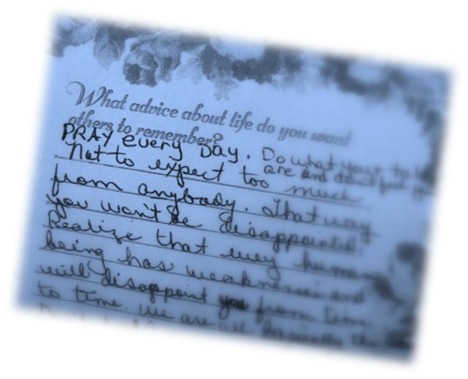 What advice about life do you want
others to remember?
PRAY every DAY. Do what your
are and don't
Not to expect too much
from anybody. That way
you won't be disappointed.
Realize that every human
being has weaknesses and
will disappoint you from time
to time. We are all basically the